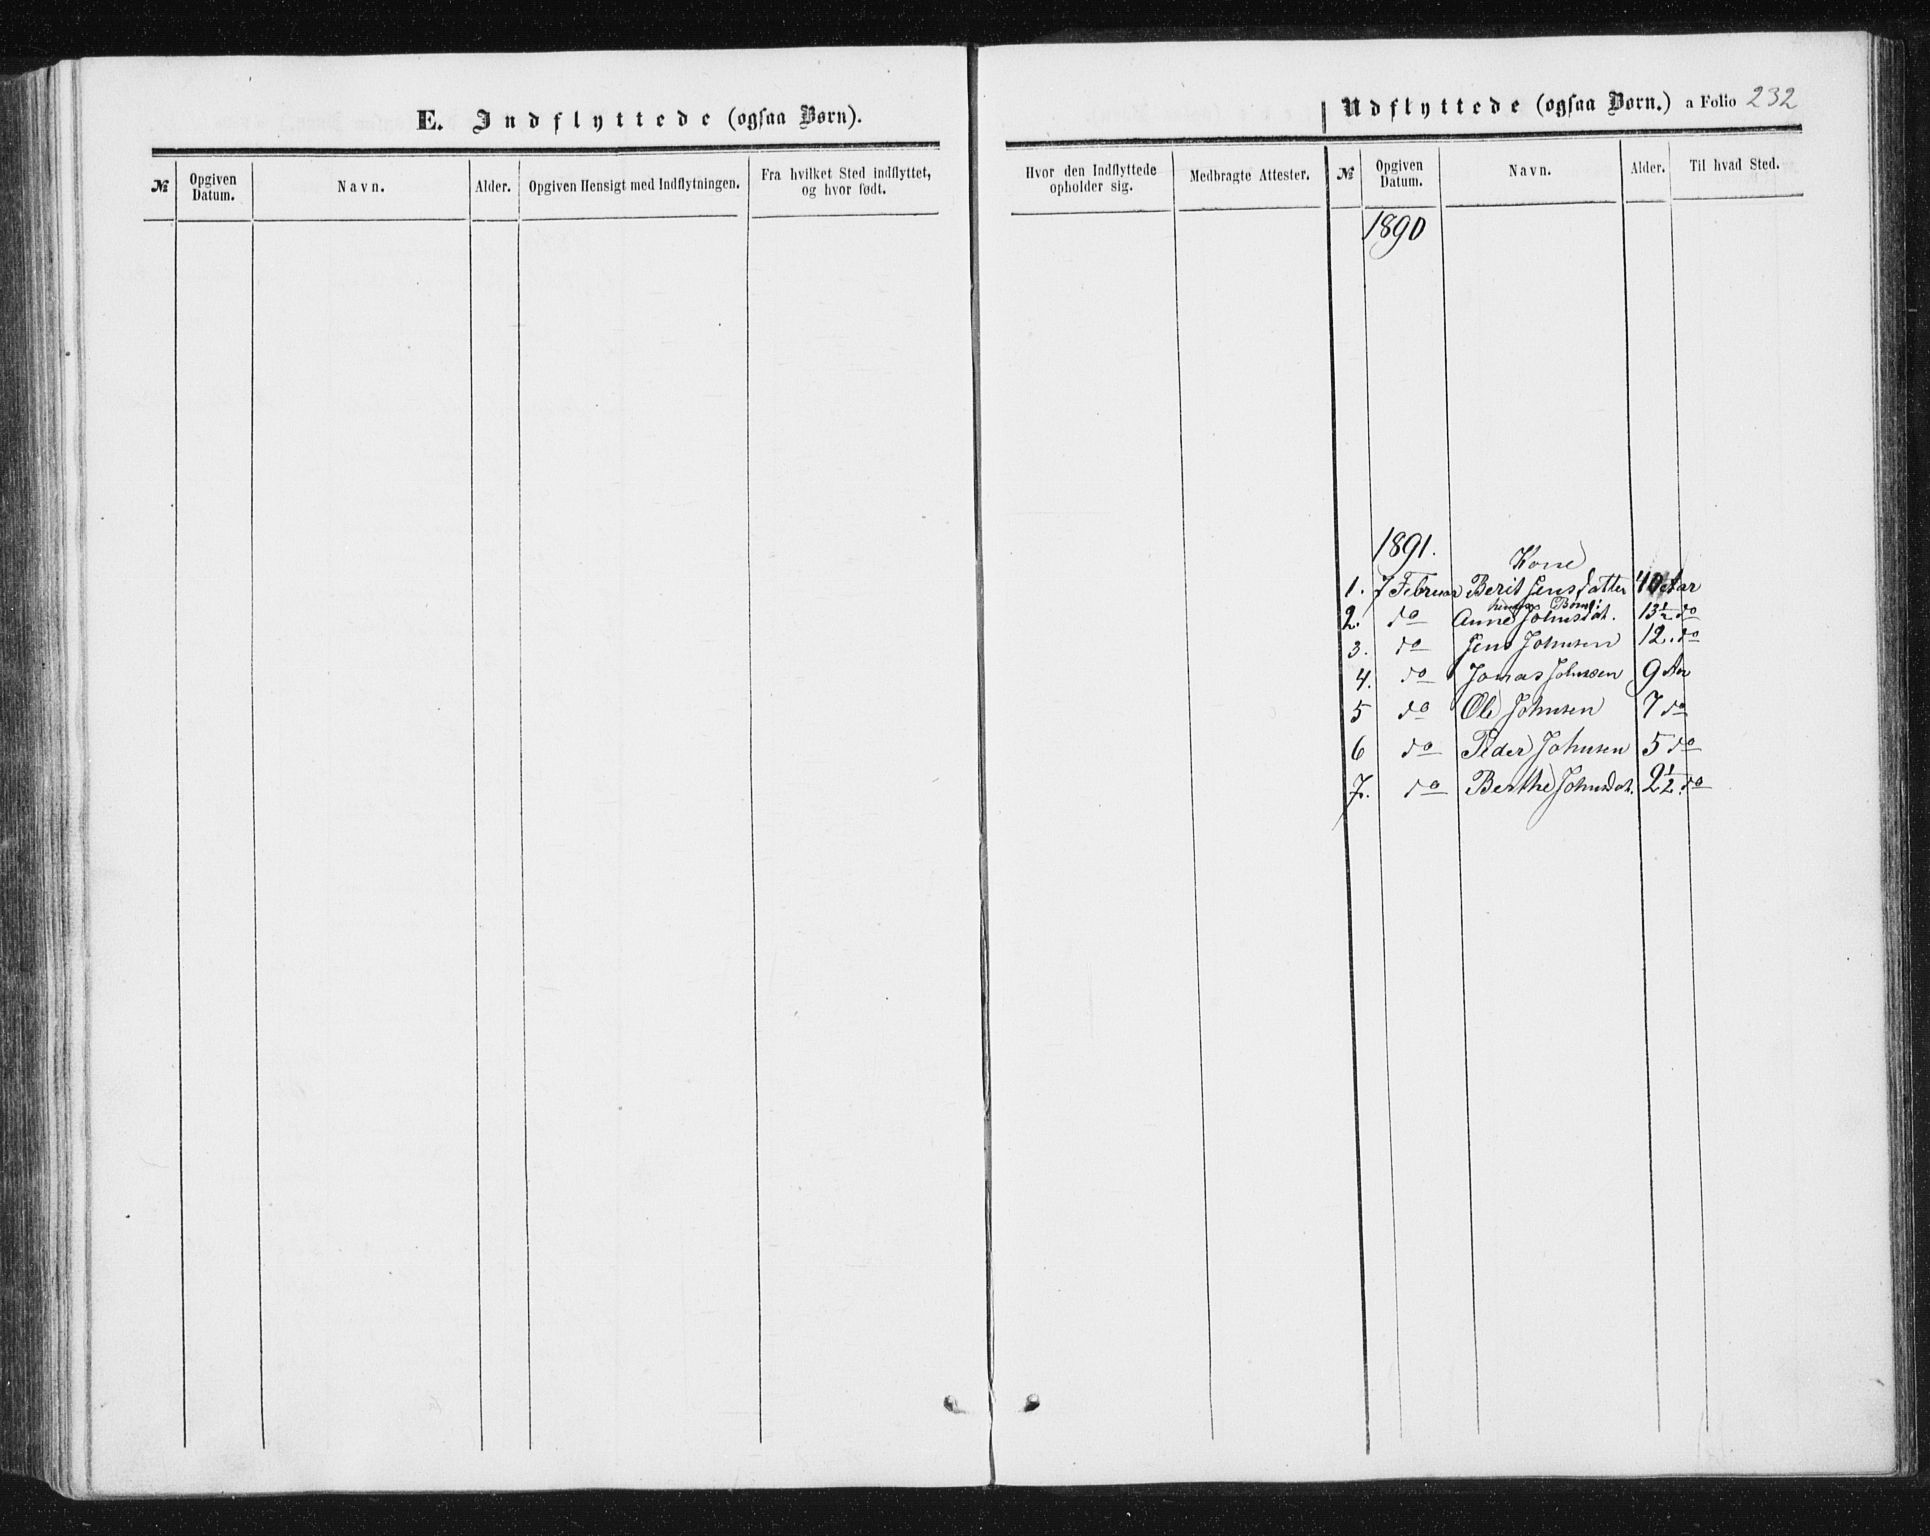 E. Indflyttede (ogsaa Børn).
№
Opgiven Datum.
Navn.
Alder.
Opgiven Hensigt med Indflytningen.
Fra hvilket Sted indflyttet, og hvor født.
Udflyttede (ogsaa Børn.) a Folio 232
Hvor den Indflyttede opholder sig.
Medbragte Attester.
№
Opgiven Datum.
Navn.
Alder.
Til hvad Sted.
1890
1891.
Kone
1. 7 Februar Berit Jensdatter 40 Aar
hendes Børn:
2. do Anne Johnsdat. 13½ do
3. do Jens Johnsen 12. do
4. do Jonas Johnsen 9 Aar
5 do Ole Johnsen 7 do
6 do Peder Johnsen 5 do
7. do Berthe Johnsdat. 2½ do